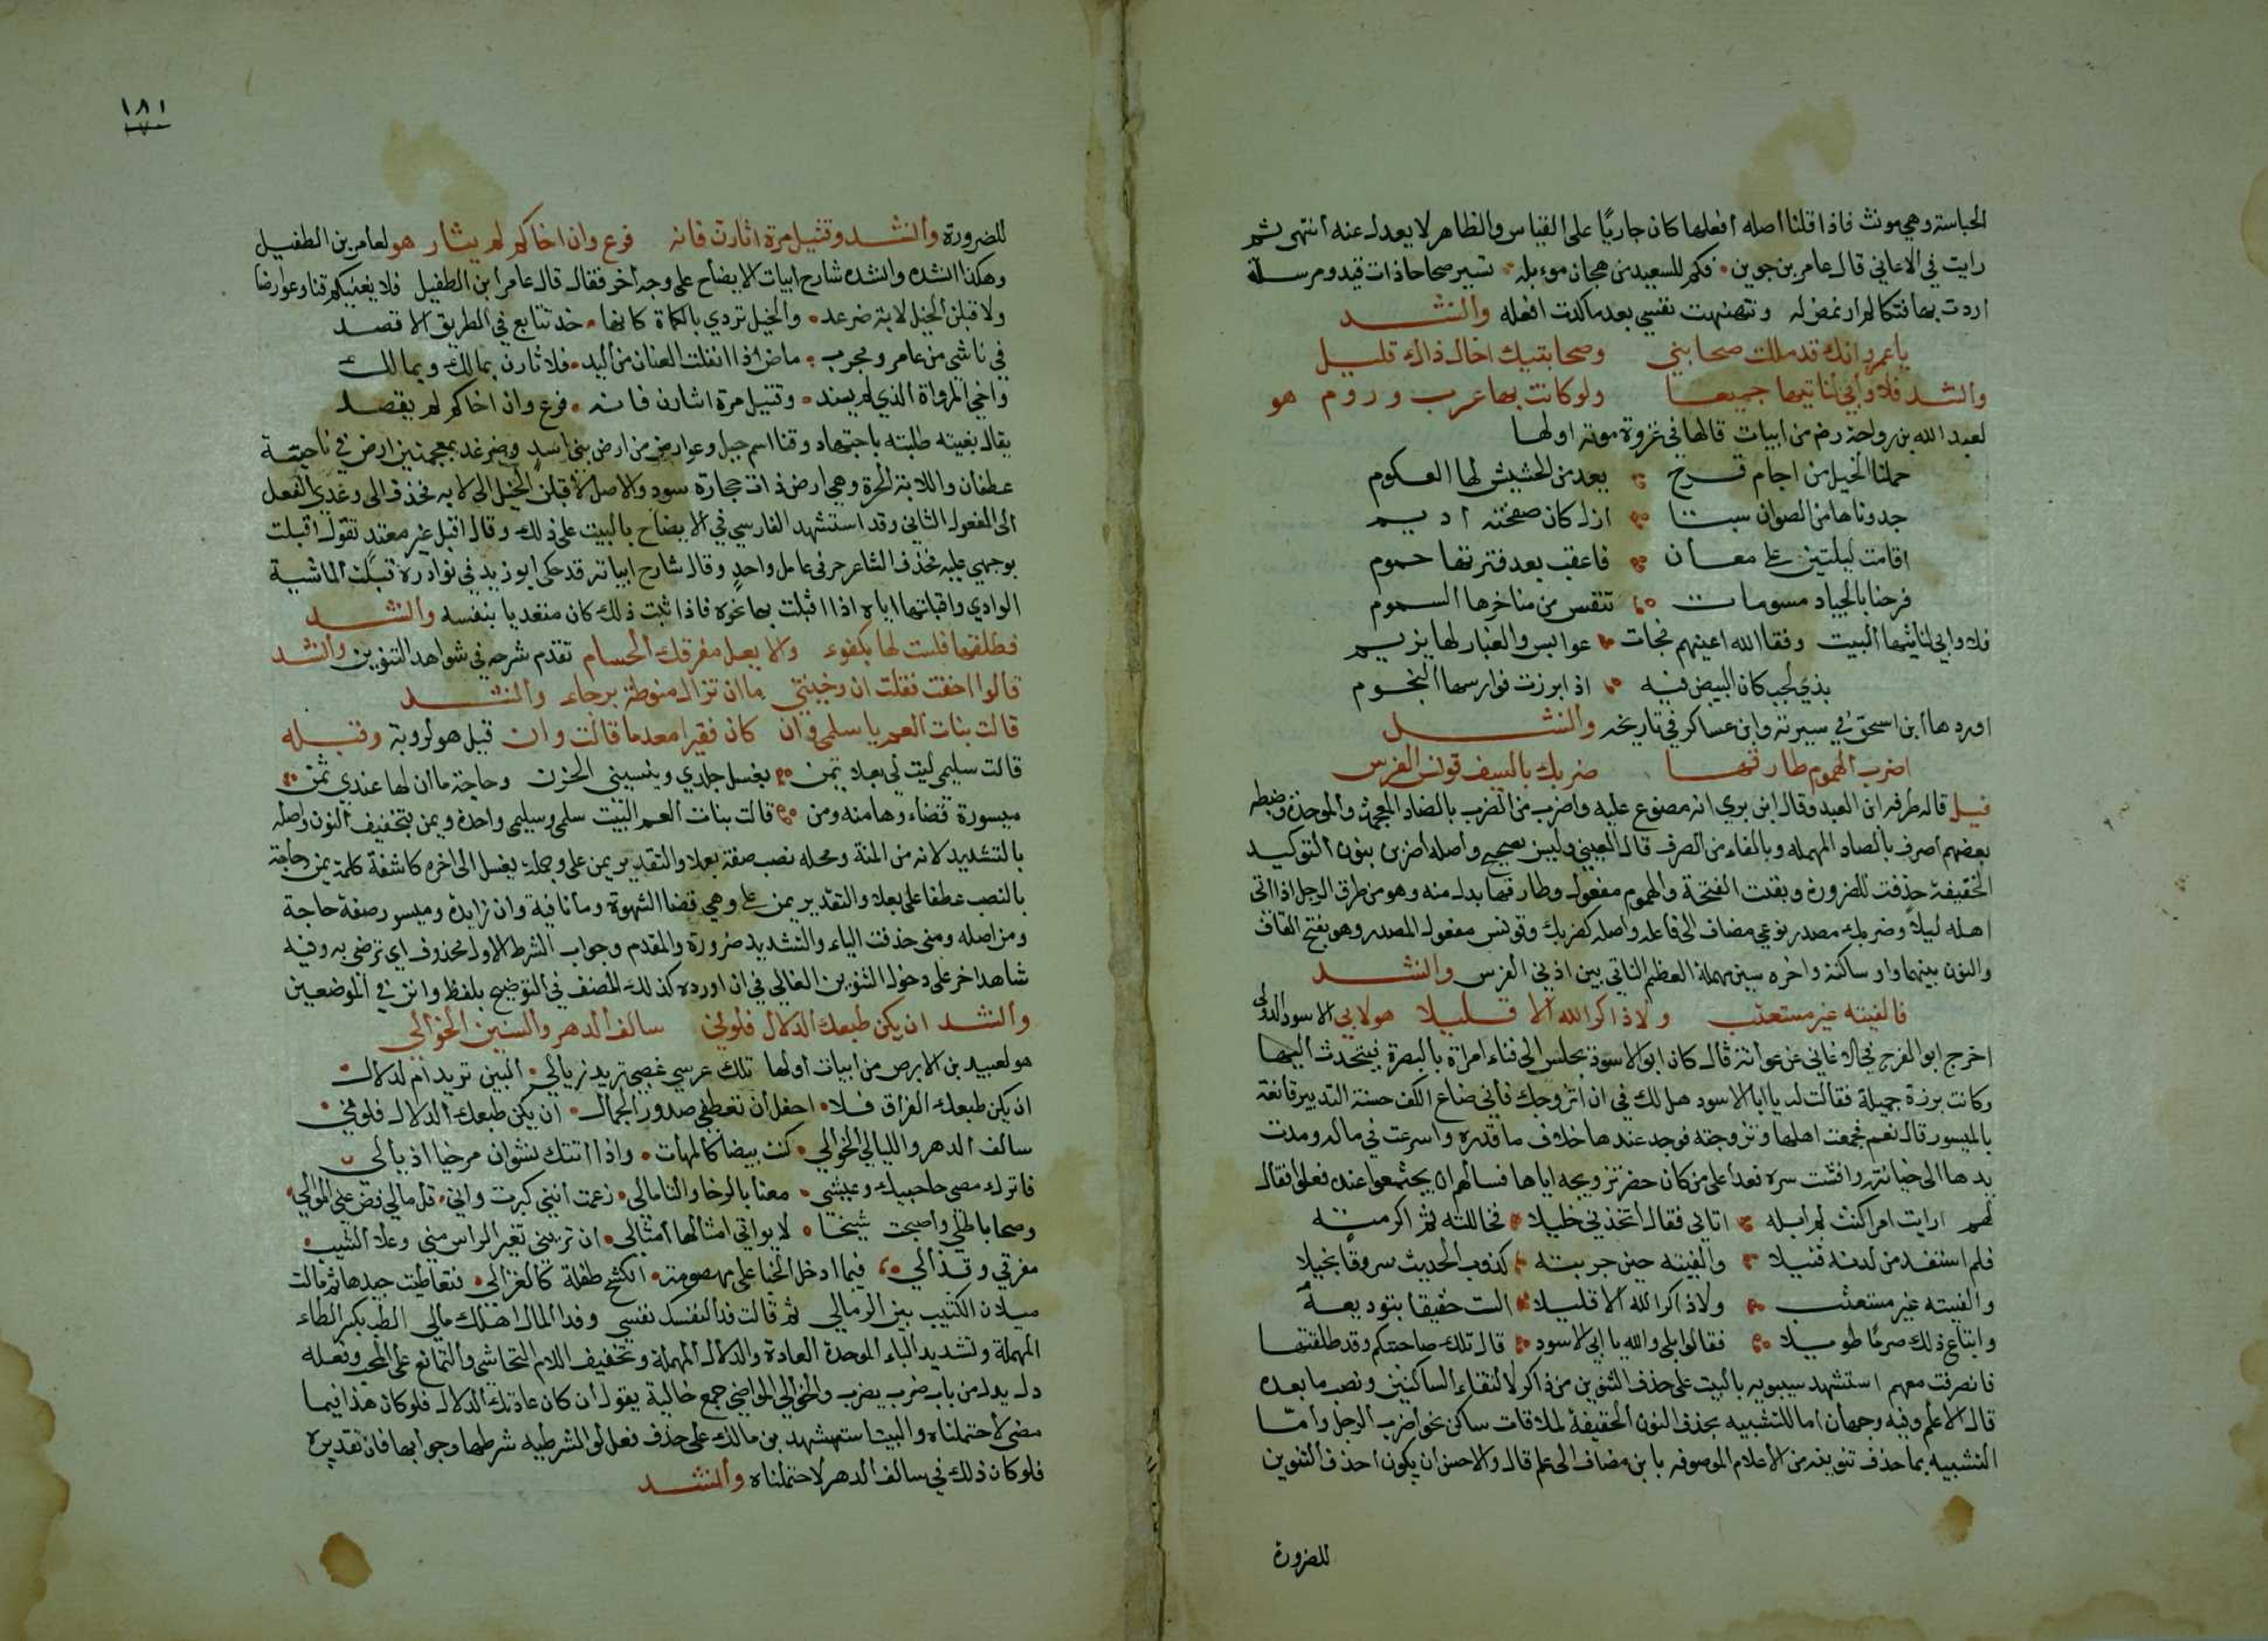 الحباسة وهي مونث فاذا قلنا اصله افعلها كان جاريا على القياس والظاهر لا يعدل عنه انتهى ثم
رايت في الاغاني قال عامر بن جوين فكم للسعيد من هجان موءبله تسير صحاحا ذات قيد ومرسلة
اردت بها فتكا فلم ارتمض له ونهنهت نفسي بعدما كدت افعله وانشد
يا عمرو انك قد مللت صحابتي وصحابتيك اخال ذاك قليل
وانشد فلا وأبي لناتيها جميعا ولو كانت بها عرب وروم هو
لعبد الله بن رواحة رضه من ابيات قالها في غزوة موته اولها
حملنا الخيل من اجام قرح يعد من الحشيش لها العكوم
حدوناها من الصوان سبتا ازل كان صفحته اديم
اقامت ليلتين على معان فاعقب بعد فترتها حموم
فرحنا بالجياد مسومات تنفس من مناخرها السموم
فلا وابي لناتيها البيت وفقا الله اعينهم فجات عوابس والغبار لها يزيم
بذي لجب كان البيض فيه اذا برزت فوارسها النجوم
اوردها ابن اسحق في سيرته وابن عساكر في تاريخه وانشد
اضرب الهموم طارقها ضربك بالسيف قونس الفرس
قيل قاله طرفه ابن العبد وقال ابن بري انه مصنوع عليه واضرب من الضرب بالضاد المعجمة والموحدة وضبطه
بعضهم اصرف بالصاد المهمله وبالفاء من الصرف قال العيني وليس بصحيح واصله اضربن بنون التوكيد
الخفيفة حذفت للضرورة وبقت الفتحة والهموم مفعول وطارقها بدل منه وهو من طرق الرجل اذا اتى
اهله ليلا وضربك مصدر نوعي مضاف الى فاعله واصله كضربك وقونس مفعول المصدر وهو بفتح القاف
والنون بينهما واو ساكنة واخره سين مهملة العظم الناتي بين اذني الفرس وانشد
فالفيته غير مستعتب ولا ذاكر الله الا قليلا هو لابي الاسود الدولي
اخرج ابو الفرج في الاغاني عن عوانة قال كان ابو الاسود يجلس الى فناء امراة بالبصرة فيتحدث اليها
وكانت برزة جميلة فقالت له يا ابا الاسود هل لك في ان اتزوجك فأني صناع الكف حسنة التدبير قانعة
بالميسور قال نعم فجمعت اهلها وتزوجته فوجد عندها خلاف ما قدره واسرعت في ماله ومدت
يدها الى خيانته وافشت سره فغدا على من كان حضر تزويجه اياها فسالهم ان يجتمعوا عنده ففعلوا فقال
لهم ارايت امرا كنت لم ابله اتاني فقال اتخذني خليلا فخاللته ثم اكرمته
فلم استفد من لدنه فتيلا والفيته حين جربته كذوب الحديث سروقا بخيلا
والفيته غير مستعتب ولا ذاكر الله الا قليلا الست حقيقا بتوديعه
واتباع ذلك صرما طويلا فقالوا بلى والله يا ابا الاسود قال تلك صاحبتكم وقد طلقتها
فانصرفت معهم استشهد سيبويه بالبيت على حذف التنوين من ذاكر لالتقاء الساكنين ونصب ما بعده
قال الاعلم وفيه وجهان اما للتشبيه بحذف النون الخفيفة لملاقات ساكن نحو اضرب الرجل وامّا
التشبيه بما حذف تنوينه من الاعلام الموصوفه بابن مضاف الى علم قال والاحسن ان يكون احذف التنوين
للضرورة
١٨١
للضرورة وانشد وقتيل مرة اثارن فانه فرع وان اخاكم لم يثار هو لعامر بن الطفيل
وهكذا انشده وانشده شارح ابيات الايضاح على وجه اخر فقال قال عامر ابن الطفيل فلا بغينكم قنا وعوارضا
ولا قبلن الخيل لابة ضرغد والخيل تردي بالكماة كانها حد تتابع في الطريق الاقصد
في ناشي من عامر ومجرب ماض اذا انفلت العنان من اليد فلا ثارن بمالك وبمالك
واخي المرواة الذي لم يسند وقتيل مرة اثارن فانه فرع وان اخاكم لم يقصد
يقال بغيته طلبته باجتهاد وقنا اسم جبل وعوارض من ارض بني اسد وضرغد بمعجمتين ارض في ناحية
غطفان واللابة الحرة وهي ارض ذات حجارة سود والاصل لاقبلن الخيل الى لابه فحذف الى وعدي الفعل
الى المفعول الثاني وقد استشهد الفارسي في الايضاح بالبيت على ذلك وقال اقبل غير معتد تقول اقبلت
بوجهي عليه فحذف الشاعر حرفي عامل واحد وقال شارح ابياته قد حكى ابو زيد في نوادره قبلت الماشية
الوادي واقبلتها اياه اذا اقبلت بها نحوه فاذا ثبت ذلك كان متعديا بنفسه وانشد
فطلقها فلست لها بكفوء والا يعل مفرقك الحسام تقدم شرحه في شواهد التنوين وانشد
قالوا اخفت فقلت ان وخيفتي ما ان تزال منوطة برجاء وانشد
قالت بنات العم يا سلمى وان كان فقيرا معدما قالت وان قيل هو لروبة وقبله
قالت سليمي ليت لي بعلا يمن يغسل جلدي وينسيني الحزن وحاجة ما ان لها عندي ثمن
ميسورة قضاءوها منه ومن قالت بنات العم البيت سلمى وسليمى واحدة ويمن بتخفيف النون واصله
بالتشديد لانه من المنة ومحله نصب صفة بعلا والتقدير يمن علي وجملة يغسل الى اخره كاشفة كلمة يمن وحاجة
بالنصب عطفا على بعلا والتقدير يمن علي وهي قضا الشهوة وما نافية وان زايدة وميسورة صفة حاجة
ومن اصله ومني حذفت الياء والتشديد ضرورة والمقدم وجواب الشرط الاول محذوف اي ترضى به وفيه
شاهد اخر على دخول التنوين الغالي في ان اورده كذلك المصنف في التوضيح بلفظ وانن في الموضعين
وانشد ان يكن طبعك الدلال فلو في سالف الدهر والسنين الخوالي
هو لعبيد بن الابرص من ابيات اولها تلك عرسي غضبى تريد زيالي البين تريد ام لدلال
ان يكن طبعك الفراق فلا احفل أن تعطفي صدور الجمال ان يكن طبعك الدلال فلو في
سالف الدهر والليالي الخوالي كنت بيضا كالمهات واذا اتتك نشوان مرخيا اذيالي
فاتركي مصي حاجبيك وعيشي معنا بالرخا والتامالي زعمت انني كبرت واني قل مالي وضن عني الموالي
وصحا باطلي واصبحت شيخا لا يواتي امثالها امثالي ان تريني تغير الراس مني وعلا الشيب
مفرقي وقذالي فيما ادخل الخبا على مهصومة الكشح طفلة كالغزالي فتعاطيت جيدها ثم مالت
ميلان الكثيب بين الرمالي ثم قالت فدا لنفسك نفسي وفدا لمال اهلك مالي الطب بكسر الطاء
المهملة وتشديد الباء الموحدة العادة والدلال المهملة وتخفيف اللام التحاشي والتمانع على المحب وفعله
دل يدل من باب ضرب يضرب والخوالي المواضي جمع خالية يقول أن كان عادتك الدلال فلو كان هذا فيما
مضى لاحتملناه والبيت استشهد به بن مالك على حذف فعل لو الشرطيه شرطها وجوابها فان تقديره
فلو كان ذلك في سالف الدهر لاحتملناه وانشد